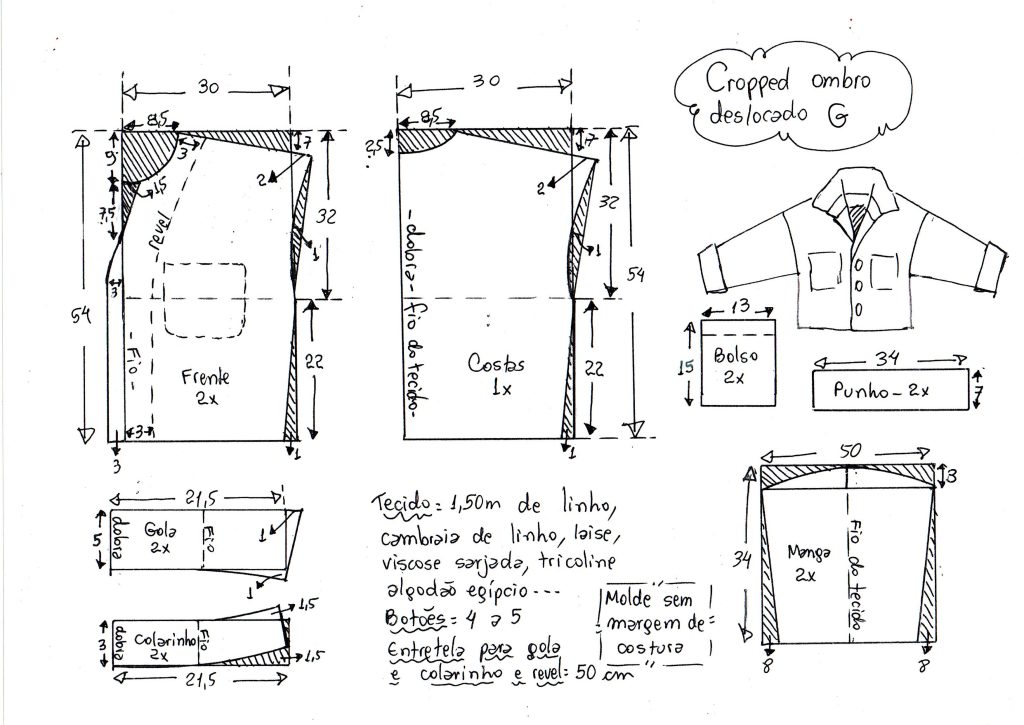 Cropped ombro
deslocado G
30
8,5
3
7
9
1,5
7,5
2
32
1
revel
3
54
-Fio-
Frente
2x
22
3
3
1
30
8,5
2,5
7
2
32
1
54
-dobra-fio do tecido-
Costas
1x
22
1
13
15
Bolso
2x
34
Punho-2x
7
21,5
5
dobra
Gola
2x
Fio
1
1
3
dobra
Colarinho
2x
Fio
1,5
1,5
21,5
Tecido = 1,50m de linho,
cambraia de linho, laise,
viscose sarjada, tricoline
algodão egípcio ---
Botões = 4 a 5
Entretela para gola
e colarinho e revel = 50 cm
Molde sem
margem de
costura
50
3
34
Manga
2x
Fio do tecido
8
8